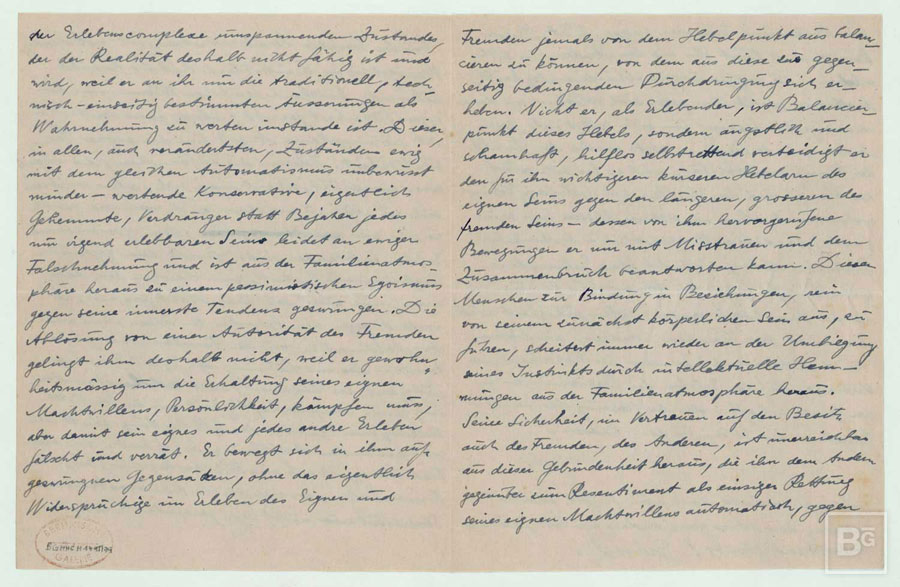 der Erlebenscomplexe umspannenden Zustandes,
der der Realität deshalb nicht fähig ist und
wird, weil er an ihr nur die traditionell, tech-
nisch-einseitig bestimmten Äusserungen als
Wahrnehmung zu werten imstande ist. Dieser,
in allen, auch verändertsten, Zuständen ewig
mit dem gleichen Automatismus unbewusst
minder-wertende Konservative, eigentlich
Gehemmte, Verdränger statt Bejaher jedes
nur irgend erlebbaren Seins leidet an ewiger
Falschnehmung und ist aus der Familienatmos-
phäre heraus zu einem pessimistischen Egoismus
gegen seine innerste Tendenz gezwungen. Die
Ablösung von einer Autorität des Fremden
gelingt ihm deshalb nicht, weil er gewohn-
heitsmässig um die Erhaltung seines eignen
Machtwillens, Persönlichkeit, kämpfen muss,
aber damit sein eignes und jedes andre Erleben
fälscht und verrät. Er bewegt sich in ihm auf-
gezwungnen Gegensätzen, ohne das eigentlich
Widersprüchige im Erleben des Eignen und
Fremden jemals von dem Hebelpunkt aus balan-
cieren zu können, von dem aus diese zu gegen-
seitig bedingenden Durchdringung sich er-
heben. Nicht er, als Erlebender, ist Balancier-
punkt dieses Hebels, sondern ängstlich und
schamhaft, hilflos selbstrettend verteidigt er
den für ihn wichtigeren kürzeren Hebelarm des
eignen Seins gegen den längeren, grösseren des
fremden Seins – dessen von ihm hervorgerufene
Bewegungen er nur mit Misstrauen und dem
Zusammenbruch beantworten kann. Diesen
Menschen zur Bindung in Beziehungen, rein
von seinem zunächst körperlichen Sein aus, zu
führen, scheitert immer wieder an der Umbiegung
seines Instinkts durch intellektuelle Hem-
mungen aus der Familienatmosphäre heraus.
Seine Sicherheit, im Vertrauen auf den Besitz
auch des Fremden, des Anderen, ist unerreichbar
aus dieser Gebundenheit heraus, die ihn dem Andern
gegenüber zum Resentiment als einziger Rettung
seines eignen Machtwillens automatisch, gegen
BG